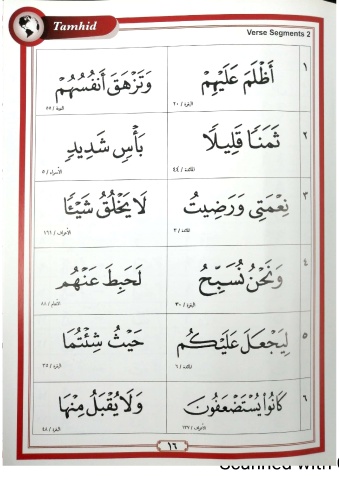 Tamhid
Verse Segments 2
١
أَظْلَمَ عَلَيْهِمْ
البقرة / ٢٠
وَتَزْهَقَ أَنفُسُهُمْ
التوبة / ٥٥
٢
ثَمَنًا قَلِيلًا
المائدة / ٤٤
بَأْسٍ شَدِيدٍ
الأسراء / ٥
٣
نِعْمَتِى وَرَضِيتُ
المائدة / ٣
لَا يَخْلُقُ شَيْـًٔا
الأعراف / ١٩١
٤
وَنَحْنُ نُسَبِّحُ
البقرة / ٣٠
لَحَبِطَ عَنْهُم
الأنعام / ٨٨
٥
لِيَجْعَلَ عَلَيْكُم
المائدة / ٦
حَيْثُ شِئْتُمَا
البقرة / ٣٥
٦
كَانُوا۟ يُسْتَضْعَفُونَ
الأعراف / ١٣٧
وَلَا يُقْبَلُ مِنْهَا
البقرة / ٤٨
١٦
Scanned with